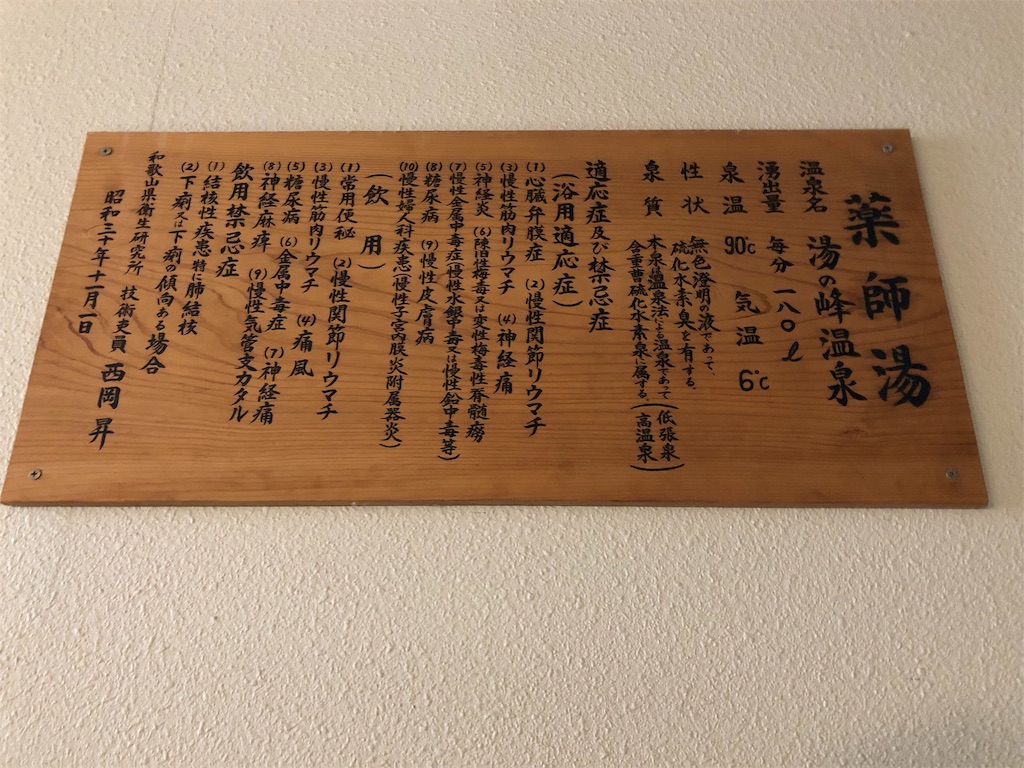 薬師湯
温泉名 湯の峰温泉
湧出量 毎分 一八〇ℓ
泉温 90℃ 気温 6℃
性状 無色澄明の液であって、
硫化水素臭を有する。
泉質 本泉は温泉法による温泉であって(低張泉
含重曹硫化水素泉に属する。高温泉)
適応症及び禁忌症
(浴用適応症)
(1)心臓弁膜症 (2)慢性関節リウマチ
(3)慢性筋肉リウマチ (4)神経痛
(5)神経炎 (6)陳旧性梅毒又は変性梅毒性脊髄癆
(7)慢性金属中毒症(慢性水銀中毒又は慢性鉛中毒等)
(8)糖尿病 (9)慢性皮膚病
(10)慢性婦人科疾患(慢性子宮内膜炎附属器炎)
(飲用)
(1)常用便秘 (2)慢性関節リウマチ
(3)慢性筋肉リウマチ (4)痛風
(5)糖尿病 (6)金属中毒症 (7)神経痛
(8)神経麻痺 (9)慢性気管支カタル
飲用禁忌症
(1)結核性疾患特に肺結核
(2)下痢又は下痢の傾向ある場合
和歌山県衛生研究所 技術吏員 西岡昇
昭和三十年十一月一日